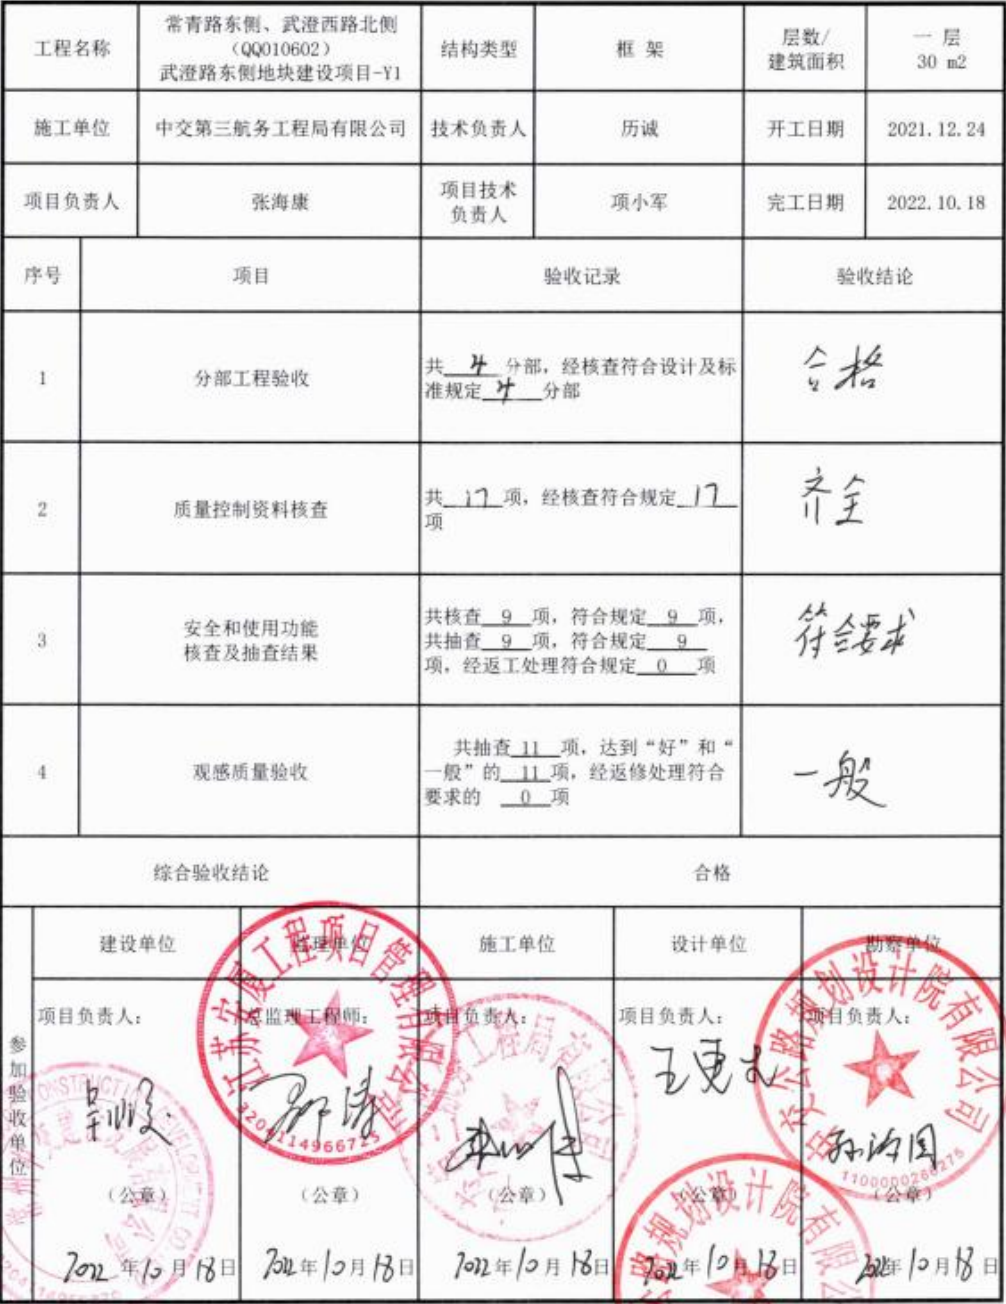 工程名称
常青路东侧、武澄西路北侧
（QQ010602）
武澄路东侧地块建设项目-Y1
结构类型
框 架
层数/
建筑面积
一 层
30 m2
施工单位
中交第三航务工程局有限公司
技术负责人
历诚
开工日期
2021.12.24
项目负责人
张海康
项目技术
负责人
项小军
完工日期
2022.10.18
序号
项目
验收记录
验收结论
1
分部工程验收
共 4 分部，经核查符合设计及标
准规定 4 分部
合格
2
质量控制资料核查
共 17 项，经核查符合规定 17
项
齐全
3
安全和使用功能
核查及抽查结果
共核查 9 项，符合规定 9 项，
共抽查 9 项，符合规定 9
项，经返工处理符合规定 0 项
符合要求
4
观感质量验收
共抽查 11 项，达到“好”和“
一般”的 11 项，经返修处理符合
要求的 0 项
一般
综合验收结论
合格
参加验收单位
建设单位
监理单位
施工单位
设计单位
勘察单位
项目负责人：
总监理工程师：
项目负责人：
项目负责人：
项目负责人：
（公章）
（公章）
（公章）
（公章）
（公章）
2022 年 10 月 18 日
2022 年 10 月 18 日
2022 年 10 月 18 日
2022 年 10 月 18 日
2022 年 10 月 18 日
工程项目管理有限公司
路规划设计院有限公司
1100000266275
路规划设计院有限